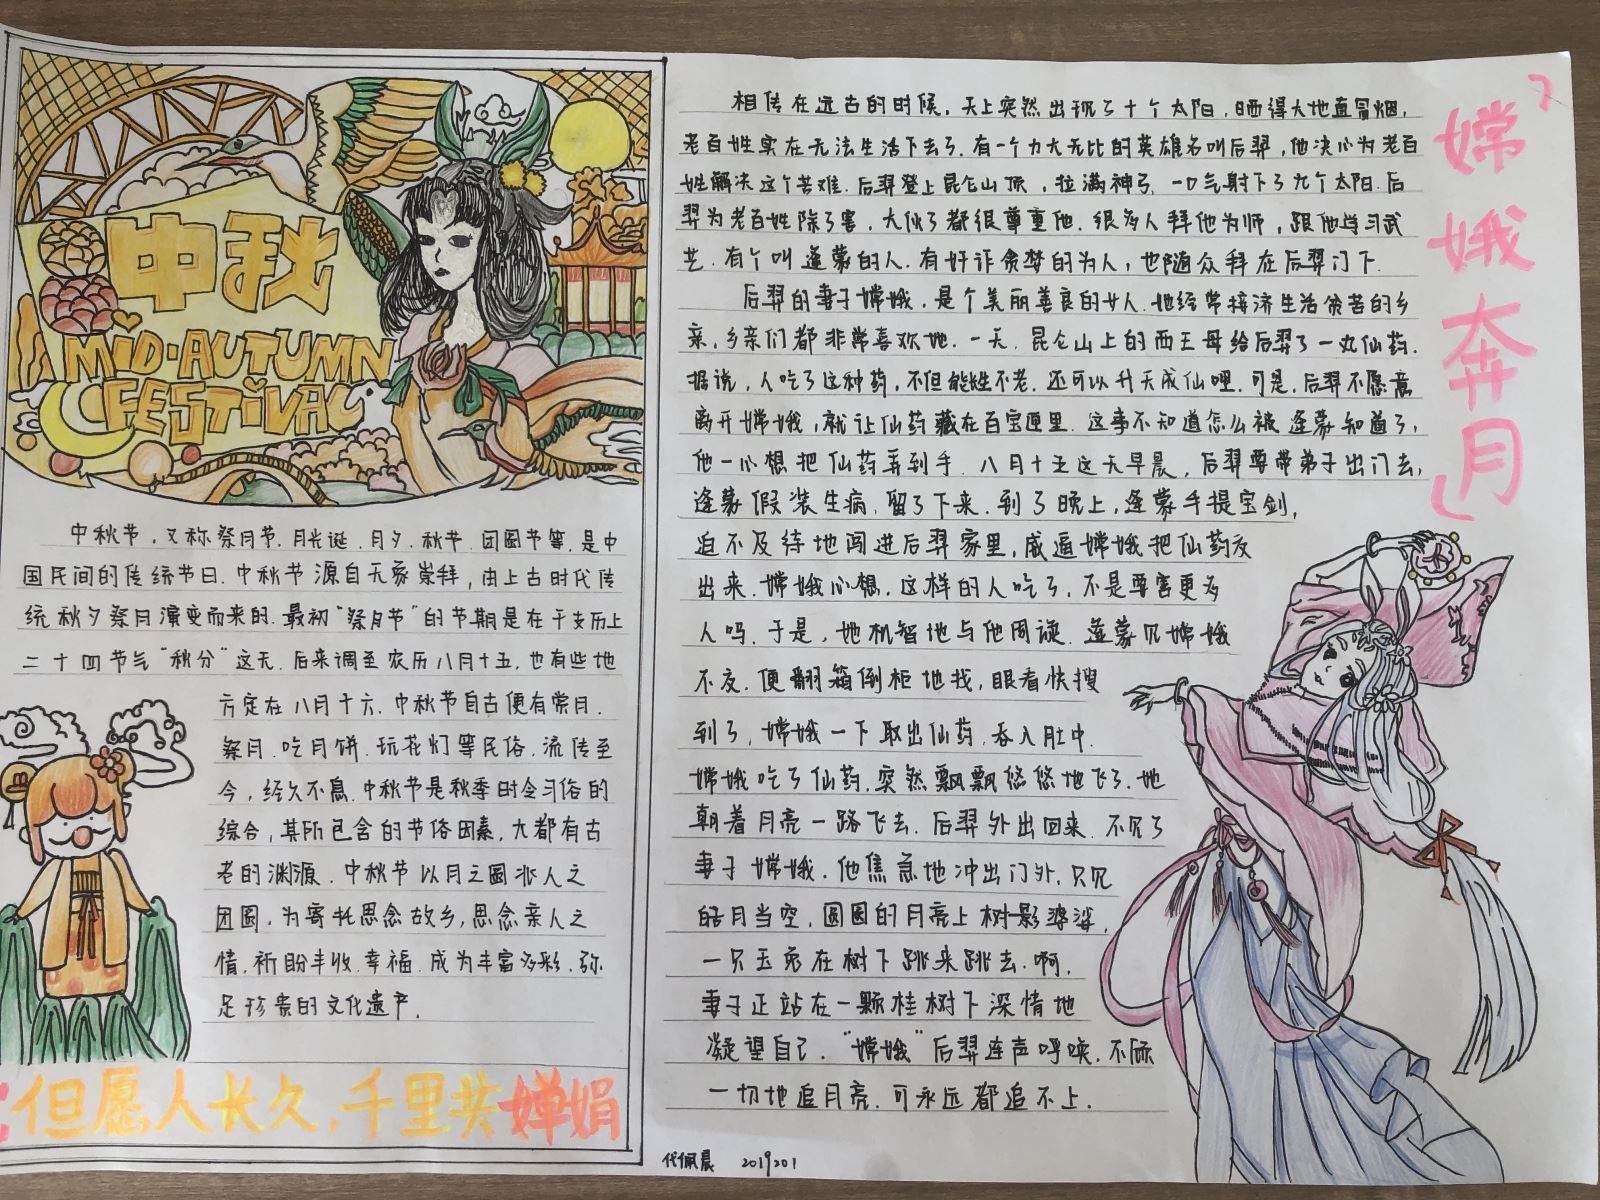 中秋
MID·AUTUMN
FESTIVAL
中秋节，又称祭月节、月光诞、月夕、秋节、团圆节等，是中
国民间的传统节日。中秋节源自天象崇拜，由上古时代传
统秋夕祭月演变而来的。最初“祭月节”的节期是在干支历上
二十四节气“秋分”这天，后来调至农历八月十五，也有些地
方定在八月十六。中秋节自古便有赏月、
祭月、吃月饼、玩花灯等民俗，流传至
今，经久不息。中秋节是秋季时令习俗的
综合，其所包含的节俗因素，大都有古
老的渊源。中秋节以月之圆兆人之
团圆，为寄托思念故乡，思念亲人之
情，祈盼丰收、幸福，成为丰富多彩、弥
足珍贵的文化遗产。
但愿人长久，千里共婵娟
「嫦娥奔月」
相传在远古的时候，天上突然出现了十个太阳，晒得大地直冒烟，
老百姓实在无法生活下去了。有一个力大无比的英雄名叫后羿，他决心为老百
姓解决这个苦难。后羿登上昆仑山顶，拉满神弓，一口气射下了九个太阳。后
羿为老百姓除了害，大伙了都很尊重他。很多人拜他为师，跟他学习武
艺。有个叫逢蒙的人，有奸诈贪婪的为人，也随众拜在后羿门下。
后羿的妻子嫦娥，是个美丽善良的女人。她经常接济生活贫苦的乡
亲，乡亲们都非常喜欢她。一天，昆仑山上的西王母给后羿了一丸仙药。
据说，人吃了这种药，不但能性不老，还可以升天成仙哩。可是，后羿不愿意
离开嫦娥，就让仙药藏在百宝匣里。这事不知道怎么被逢蒙知道了，
他一心想把仙药弄到手。八月十五这天早晨，后羿要带弟子出门去，
逢蒙假装生病，留了下来。到了晚上，逢蒙手提宝剑，
迫不及待地闯进后羿家里，威逼嫦娥把仙药交
出来。嫦娥心想，这样的人吃了，不是要害更多
人吗。于是，她机智地与他周旋。逢蒙见嫦娥
不交，便翻箱倒柜地找，眼看快搜
到了，嫦娥一下取出仙药，吞入肚中。
嫦娥吃了仙药，突然飘飘悠悠地飞了。她
朝着月亮一路飞去。后羿外出回来，不见了
妻子嫦娥。他焦急地冲出门外，只见
皓月当空，圆圆的月亮上树影婆娑，
一只玉兔在树下跳来跳去。啊，
妻子正站在一颗桂树下深情地
凝望自己。“嫦娥”后羿连声呼唤，不顾
一切地追月亮。可永远都追不上。
代佩晨 2019201